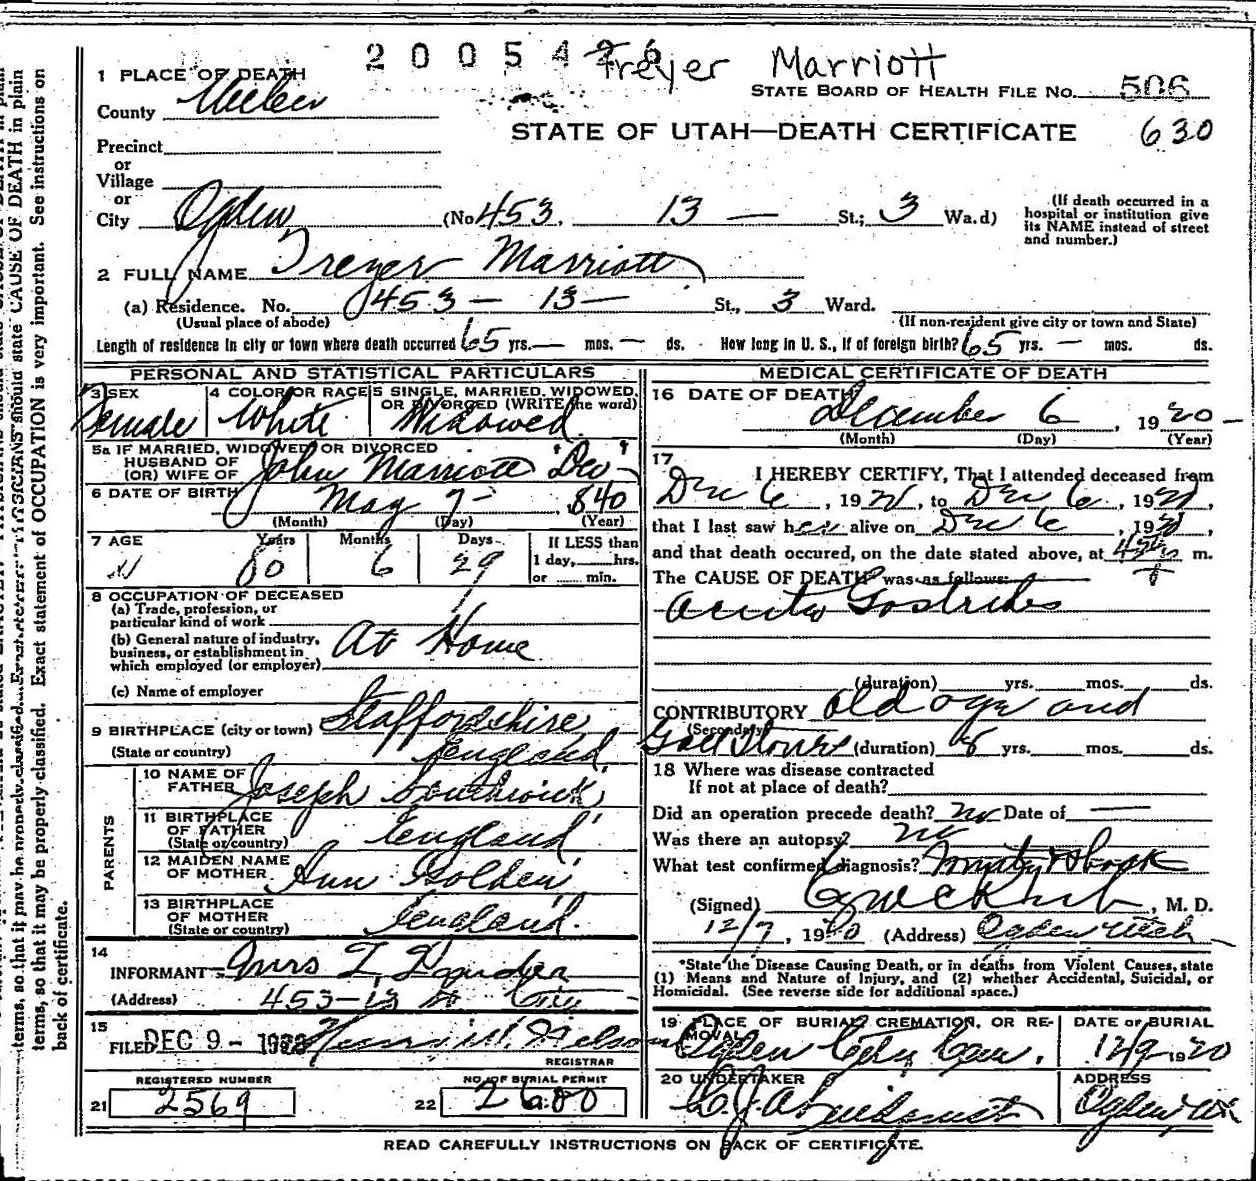 2005426 Treyer Marriott
1 PLACE OF DEATH
STATE BOARD OF HEALTH FILE No. 506
County
STATE OF UTAH—DEATH CERTIFICATE 630
Precinct
or
Village
or
City Ogden (No 453, 13 — St.; 3 Wa.d)
(If death occurred in a hospital or institution give its NAME instead of street and number.)
2 FULL NAME Treyer Marriott
(a) Residence. No. 453 — 13 — St., 3 Ward.
(Usual place of abode) (If non-resident give city or town and State)
Length of residence in city or town where death occurred 65 yrs. — mos. — ds. How long in U. S., if of foreign birth? 65 yrs. — mos. ds.
PERSONAL AND STATISTICAL PARTICULARS
3 SEX 4 COLOR OR RACE 5 SINGLE, MARRIED, WIDOWED, OR DIVORCED (WRITE the word)
Female White Widowed
5a IF MARRIED, WIDOWED OR DIVORCED
HUSBAND OF
(OR) WIFE OF John Marriott
6 DATE OF BIRTH May 7 — , 840
(Month) (Day) (Year)
7 AGE Years Months Days If LESS than
80 6 29 1 day, hrs.
or min.
8 OCCUPATION OF DECEASED
(a) Trade, profession, or
particular kind of work
(b) General nature of industry,
business, or establishment in
which employed (or employer)
At Home
(c) Name of employer
9 BIRTHPLACE (city or town) Staffordshire
(State or country) England
PARENTS
10 NAME OF FATHER Joseph Southwick
11 BIRTHPLACE OF FATHER England
(State or country)
12 MAIDEN NAME OF MOTHER Ann Golden
13 BIRTHPLACE OF MOTHER England.
(State or country)
14
INFORMANT Mrs
(Address) 453-13
15
FILED DEC 9 - Nelson
REGISTRAR
REGISTERED NUMBER NO. OF BURIAL PERMIT
21 2569 22 2680
MEDICAL CERTIFICATE OF DEATH
16 DATE OF DEATH
December 6, 1920
(Month) (Day) (Year)
17
I HEREBY CERTIFY, That I attended deceased from
Dec 6, 19 , to Dec 6, 19 ,
that I last saw her alive on Dec 6, 19
and that death occured, on the date stated above, at m.
The CAUSE OF DEATH was as follows:
(duration) yrs. mos. ds.
CONTRIBUTORY Old age and
(Secondary)
Gall Stones (duration) yrs. mos. ds.
18 Where was disease contracted
If not at place of death?
Did an operation precede death? no Date of —
Was there an autopsy? no
What test confirmed diagnosis?
(Signed) , M. D.
12/7, 1920 (Address) Ogden Utah
*State the Disease Causing Death, or in deaths from Violent Causes, state
(1) Means and Nature of Injury, and (2) whether Accidental, Suicidal, or
Homicidal. (See reverse side for additional space.)
19 PLACE OF BURIAL, CREMATION, OR REMOVAL DATE of BURIAL
Ogden City Cem. 12/9 1920
20 UNDERTAKER ADDRESS
Ogden, Ut
READ CAREFULLY INSTRUCTIONS ON BACK OF CERTIFICATE.
should state CAUSE OF DEATH in plain
terms, so that it may be properly classified. Exact statement of OCCUPATION is very important. See instructions on
back of certificate.